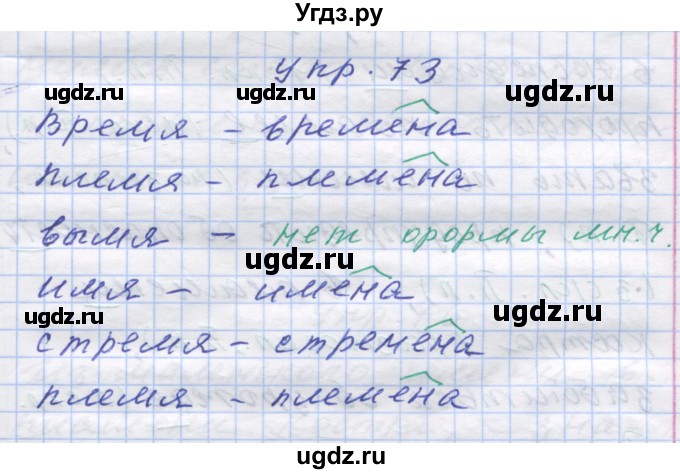 Угдз.ру
Упр. 73
ugdz.ru ugdz.ru
Время - времена
ugdz.ru
племя - племена
ugdz.ru
вымя - нет формы мн.ч.
ugdz.ru
имя - имена
ugdz.ru ugdz.ru
стремя - стремена
ugdz.ru
племя - племена
ugdz.ru ugdz.ru
Угдз.ру